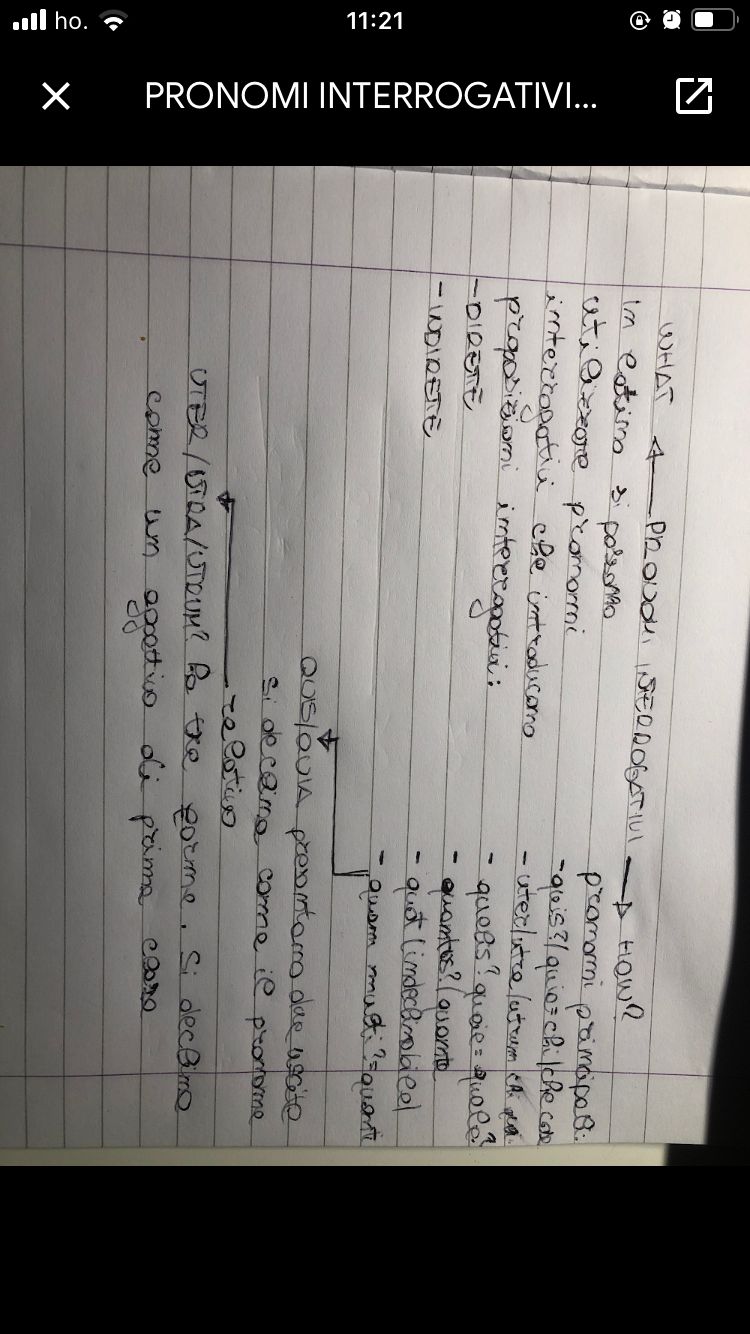 ho.
11:21
PRONOMI INTERROGATIVI...
WHAT ← PRONOMI INTERROGATIVI → HOW?
In latino si possono
utilizzare pronomi
interrogativi che introducono
proposizioni interrogativi:
- DIRETTE
- INDIRETTE
pronomi principali:
- quis?/quia = chi/che cosa
- uter/utra/utrum chi dei
- qualis? quale = quale?
- quantus?/quanta
- quot (indeclinabile)
- quam multi? = quanti
QUIS/QUIA presentano due uscite
si declina come il pronome
relativo
UTER/UTRA/UTRUM? ha tre forme. Si declina
come un aggettivo di prima classe